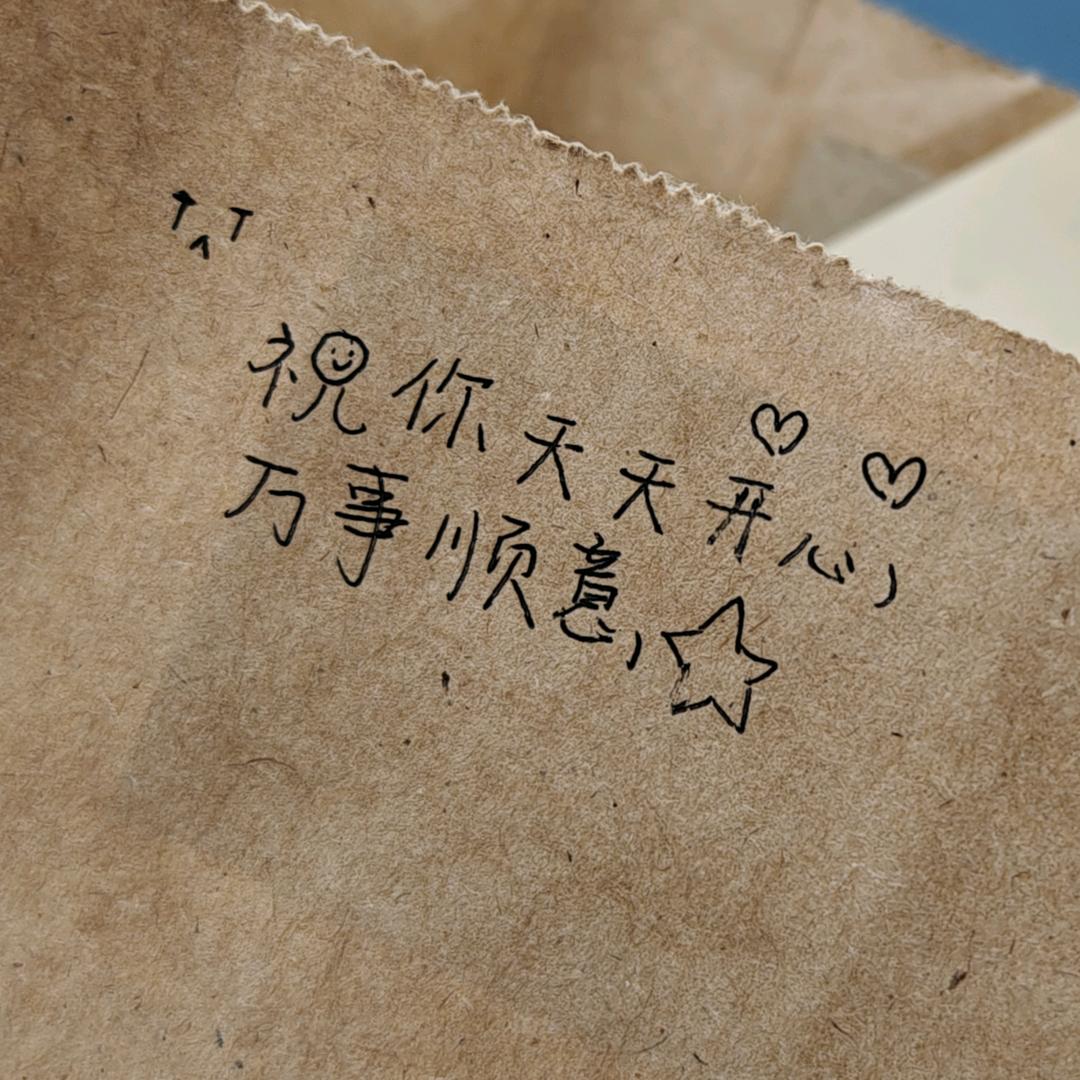 T^T
祝你天天开心，
万事顺意，